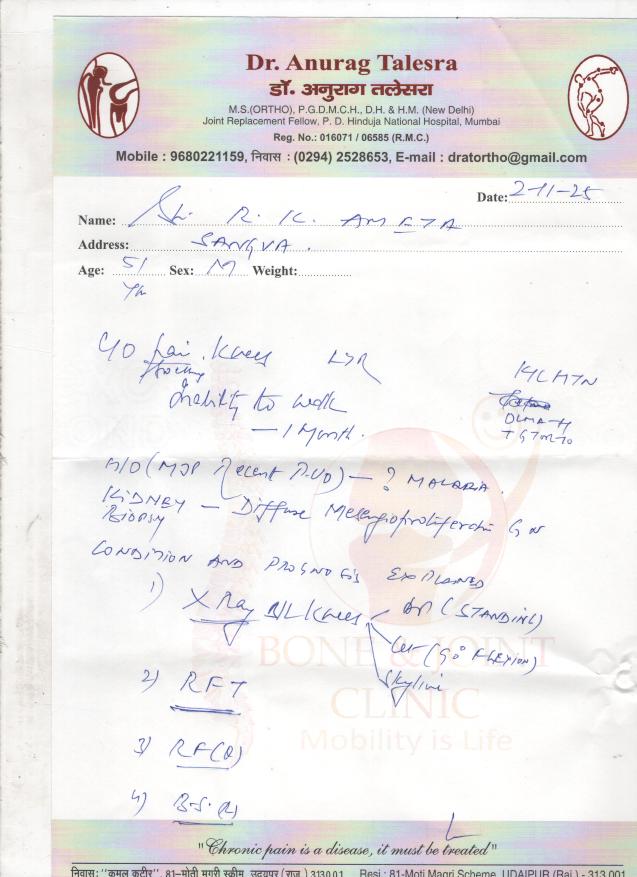 Dr. Anurag Talesra
डॉ. अनुराग तलेसरा
M.S.(ORTHO), P.G.D.M.C.H., D.H. & H.M. (New Delhi)
Joint Replacement Fellow, P. D. Hinduja National Hospital, Mumbai
Reg. No.: 016071 / 06585 (R.M.C.)
Mobile : 9680221159, निवास : (0294) 2528653, E-mail : dratortho@gmail.com
Date: 2-11-25
Name: Sh. R. K. AMETA
Address: SANGVA.
Age: 51 Sex: M Weight:
Yr
C/O pain. Knees L>R
Inability to walk
- 1 Month.
K/C HTN
OLMA-H
Recent - ? MALARIA.
KIDNEY - Diffuse Mesangioproliferative GN
BIOPSY
CONDITION AND PROGNOSIS EXPLAINED
1) X Ray B/L Knees AP (STANDING)
Lat (90° FLEXION)
Skyline
2) RFT
3) RF(Q)
4) B.S. (R)
BONE & JOINT
CLINIC
Mobility is Life
"Chronic pain is a disease, it must be treated"
निवास: "कमल कुटीर", 81-मोती मगरी स्कीम, उदयपुर (राज.) 313001 Resi.: 81-Moti Magri Scheme, UDAIPUR (Raj.) - 313 001